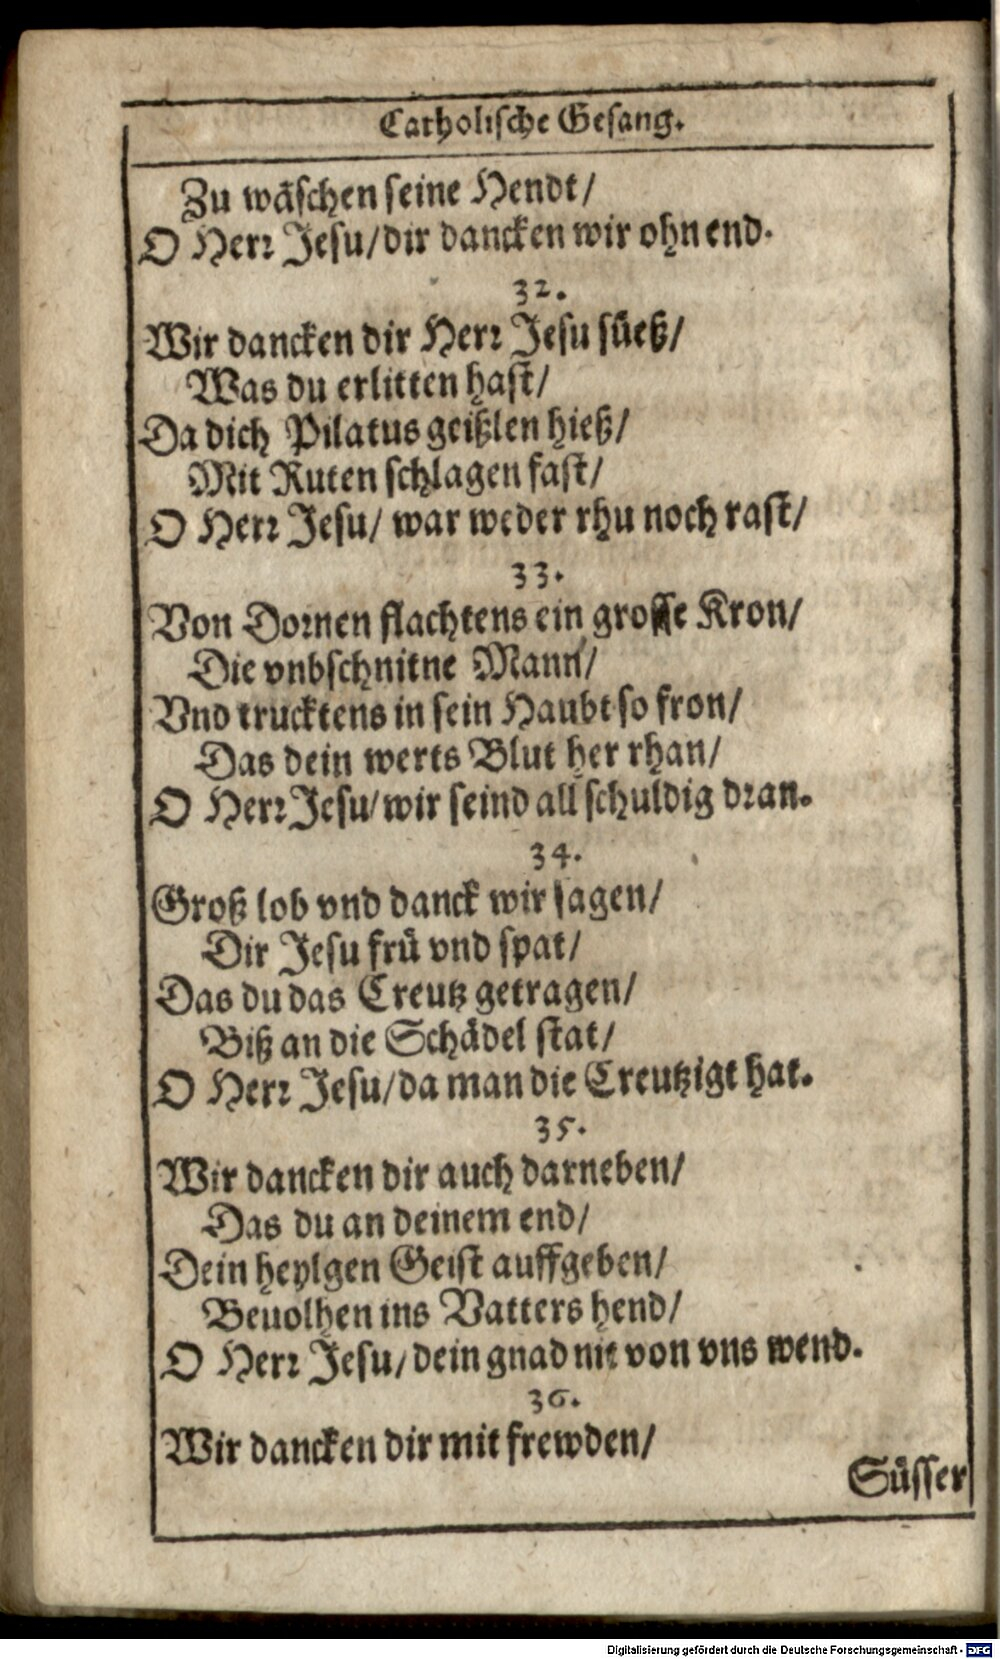 Catholische Gesang.
Zu wäschen seine Hendt/
O Herr Jesu/dir dancken wir ohn end.
32.
Wir dancken dir Herr Jesu süeß/
Was du erlitten hast/
Da dich Pilatus geißlen hieß/
Mit Ruten schlagen fast/
O Herr Jesu/ war weder rhu noch rast/
33.
Von Dornen flachtens ein grosse Kron/
Die vnbschnitne Mann/
Vnd trucktens in sein Haubt so fron/
Das dein werts Blut her rhan/
O Herr Jesu/wir seind all schuldig dran.
34.
Groß lob vnd danck wir sagen/
Dir Jesu frü vnd spat/
Das du das Creutz getragen/
Biß an die Schädel stat/
O Herr Jesu/da man die Creutzigt hat.
35.
Wir dancken dir auch darneben/
Das du an deinem end/
Dein heylgen Geist auffgeben/
Beuolhen ins Vatters hend/
O Herr Jesu/dein gnad nit von vns wend.
36.
Wir dancken dir mit frewden/
Süsser
Digitalisierung gefördert durch die Deutsche Forschungsgemeinschaft - DFG